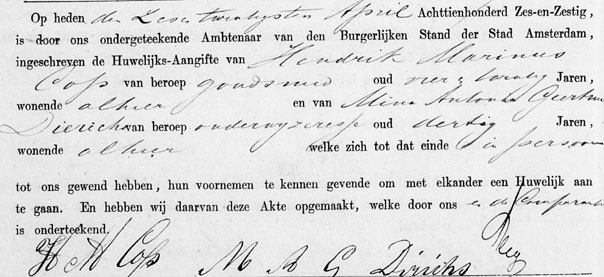 Op heden den Zesentwintigsten April Achttienhonderd Zes-en-Zestig,
is door ons ondergeteekende Ambtenaar van den Burgerlijken Stand der Stad Amsterdam,
ingeschreven de Huwelijks-Aangifte van Hendrik Marinus
Cop van beroep goudsmid oud vier & twintig Jaren,
wonende alhier en van Mina Antonia
Dierichs van beroep onderwyzeresse oud dertig Jaren,
wonende alhier welke zich tot dat einde in persoon
tot ons gewend hebben, hun voornemen te kennen gevende om met elkander een Huwelijk aan
te gaan. En hebben wij daarvan deze Akte opgemaakt, welke door ons en de Comparanten
is onderteekend.
H M Cop M A G Dirichs